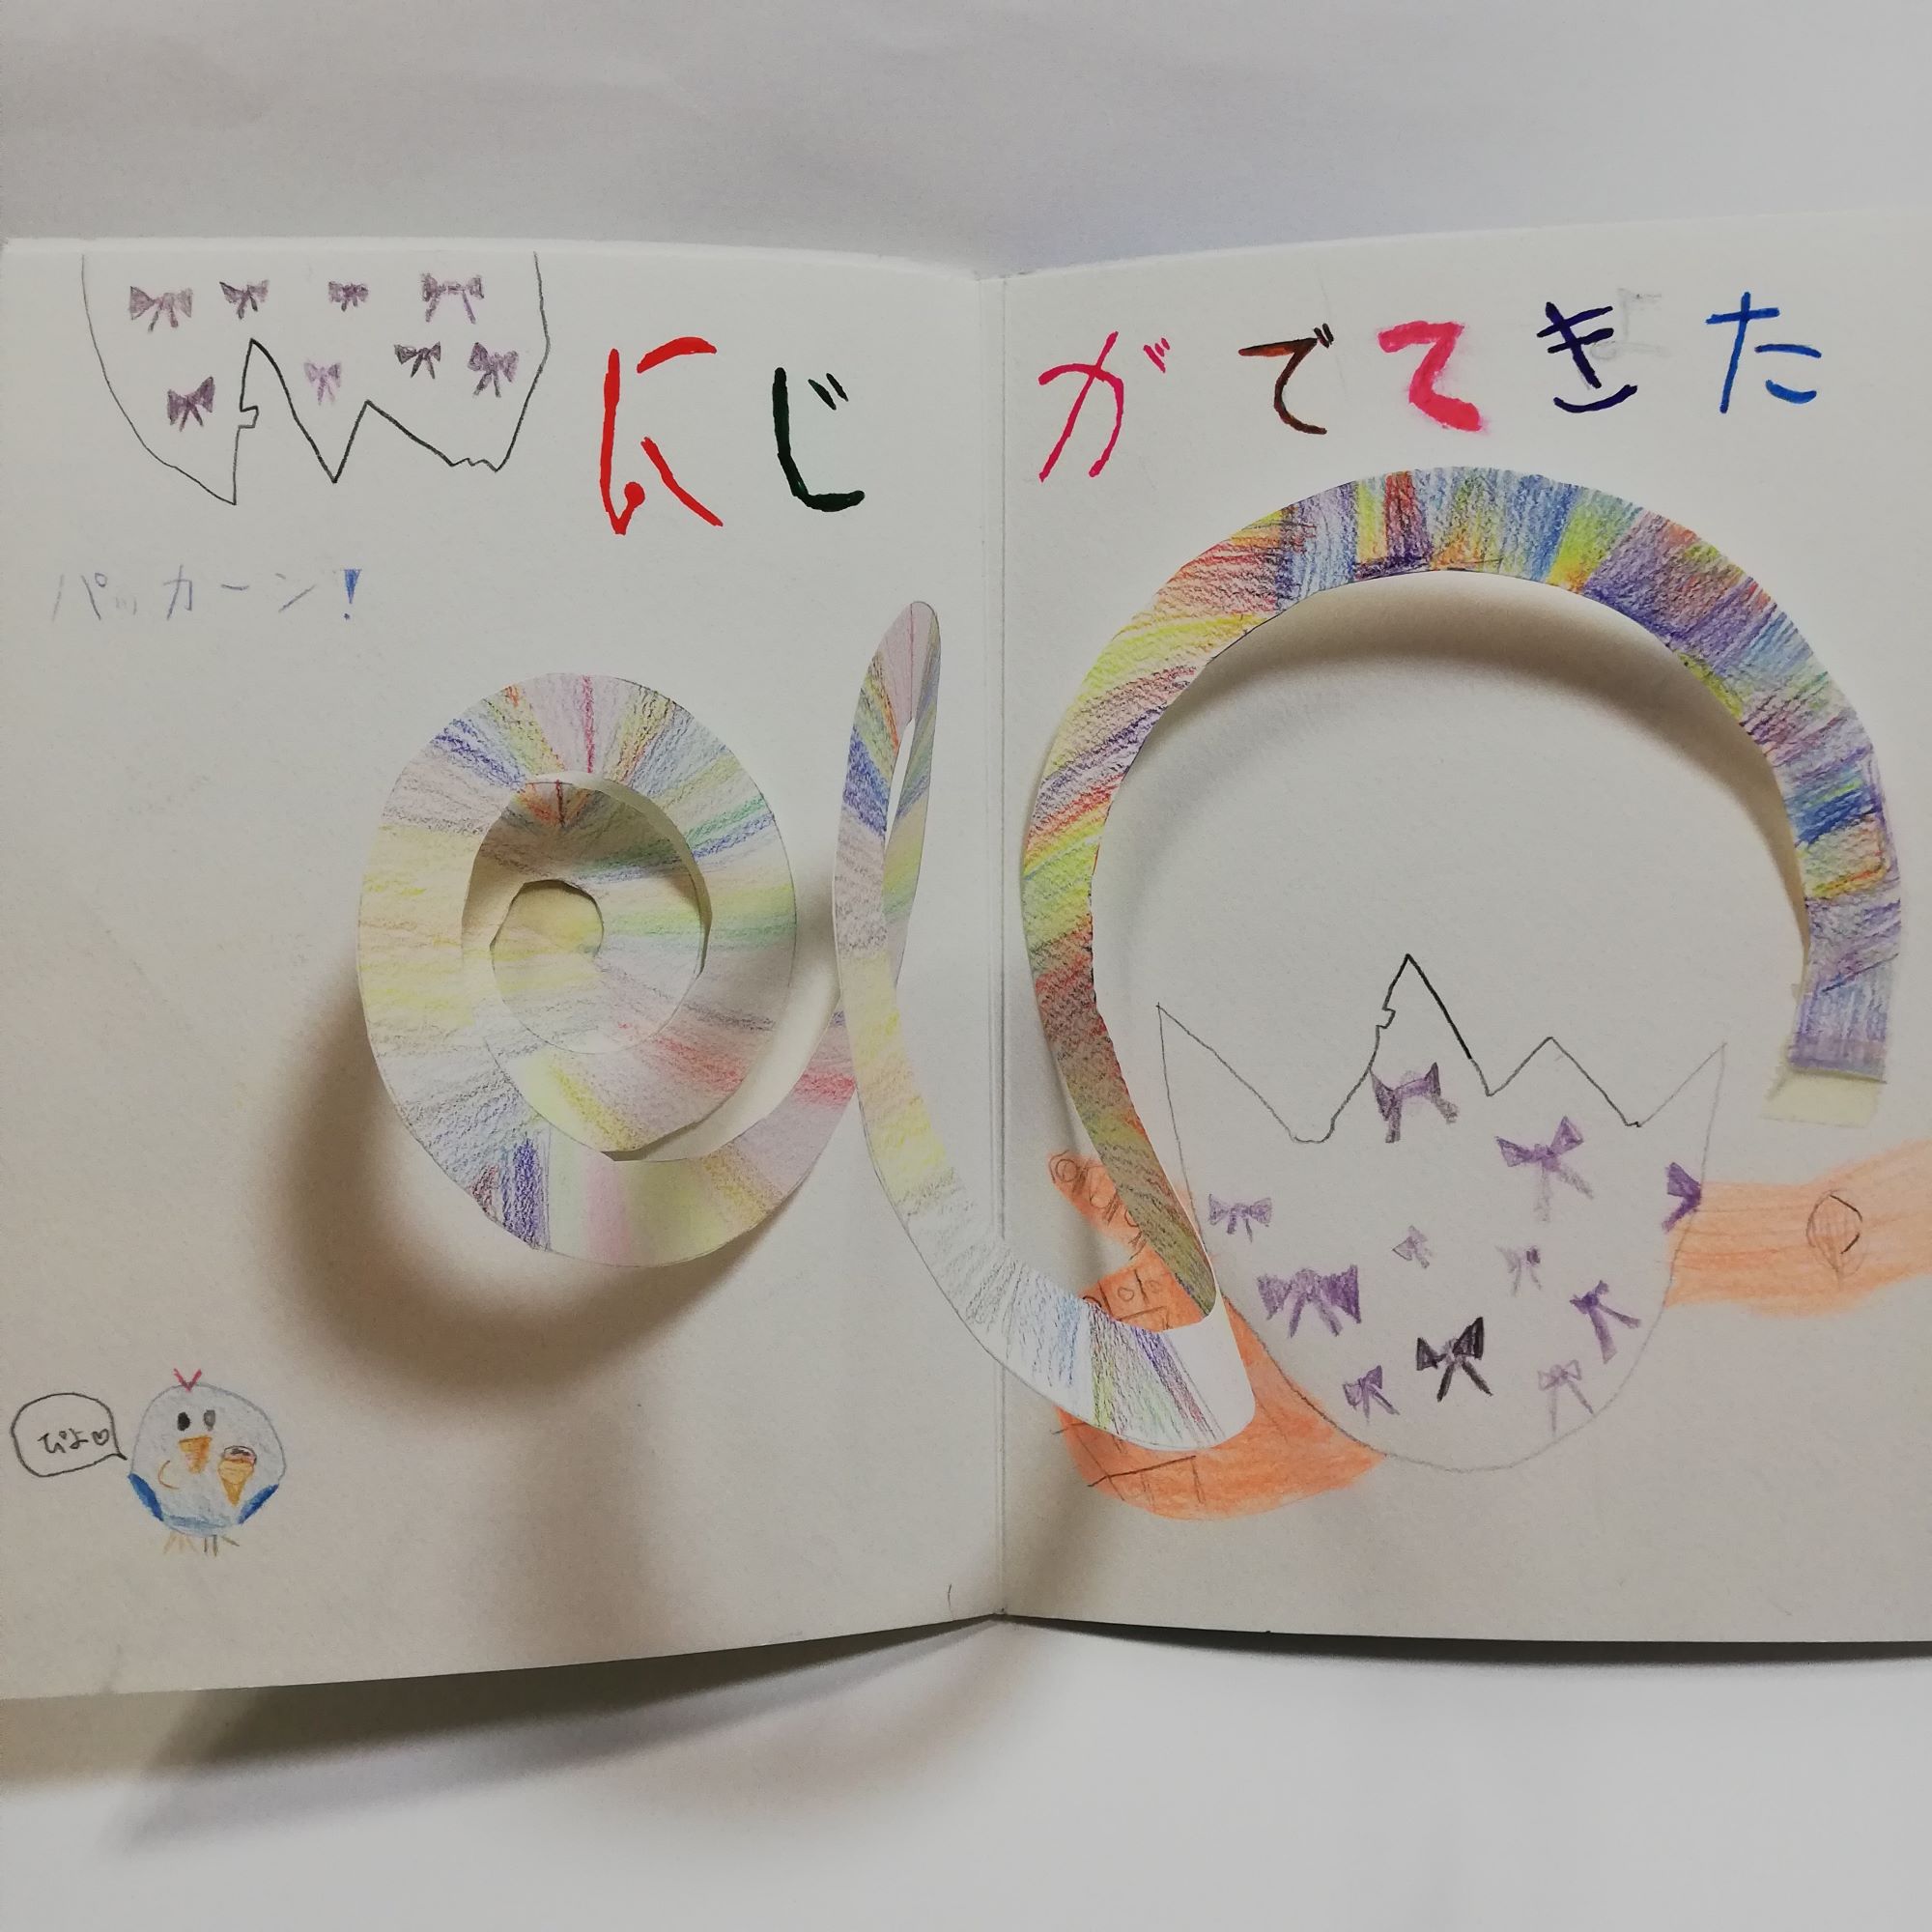 にじがでてきた
パッカーン!
ぴよ♡